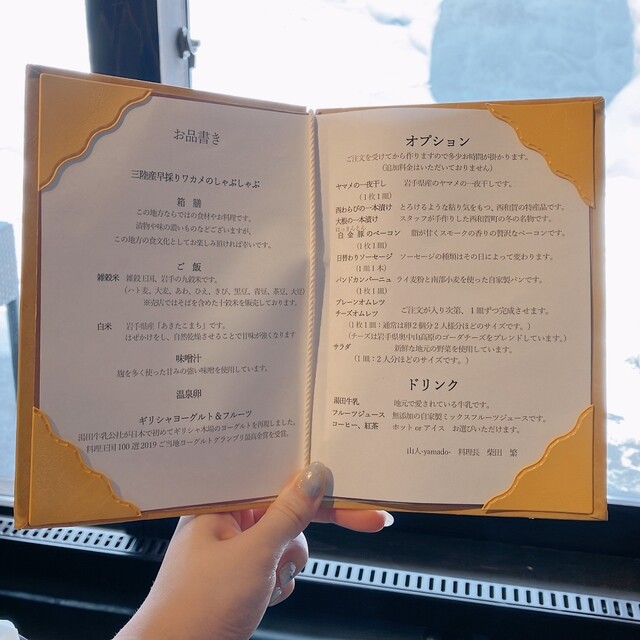 お品書き
三陸産早採りワカメのしゃぶしゃぶ
箱 膳
この地方ならではの食材やお料理です。
漬物や味の濃いものなどございますが、
この地方の食文化としてお楽しみ頂ければ幸いです。
ご 飯
雑穀米 雑穀王国、岩手の九穀米です。
(ハト麦、大麦、あわ、ひえ、きび、黒豆、青豆、茶豆、大豆)
※売店ではそばを含めた十穀米を販売しております。
白米 岩手県産「あきたこまち」です。
はぜかけをし、自然乾燥させることで甘味が強くなります
味噌汁
麹を多く使った甘みの強い味噌を使用しています。
温泉卵
ギリシャヨーグルト&フルーツ
湯田牛乳公社が日本で初めてギリシャ本場のヨーグルトを再現しました。
料理王国100選2019ご当地ヨーグルトグランプリ最高金賞を受賞。
オプション
ご注文を受けてから作りますので多少お時間が掛かります。
(追加料金はいただいておりません)
ヤマメの一夜干し 岩手県産のヤマメの一夜干しです。
(1枚1皿)
西わらびの一本漬け とろけるような粘り気をもつ、西和賀の特産品です。
大根の一本漬け スタッフが手作りした西和賀町の冬の名物です。
はっきんとん
白金豚のベーコン 脂が甘くスモークの香りの贅沢なベーコンです。
(1枚1皿)
日替わりソーセージ ソーセージの種類はその日によって変わります。
(1皿1本)
パンドカンパーニュ ライ麦粉と南部小麦を使った自家製パンです。
(1枚1皿)
プレーンオムレツ
チーズオムレツ ご注文が入り次第、1皿ずつ完成させます。
(1枚1皿:通常は卵2個分2人様分ほどのサイズです。)
(チーズは岩手県奥中山高原のゴーダチーズをブレンドしています。)
サラダ 新鮮な地元の野菜を使用しています。
(1皿:2人分ほどのサイズです。)
ドリンク
湯田牛乳 地元で愛されている牛乳です。
フルーツジュース 無添加の自家製ミックスフルーツジュースです。
コーヒー、紅茶 ホット or アイス お選びいただけます。
山人-yamado- 料理長 柴田 繁